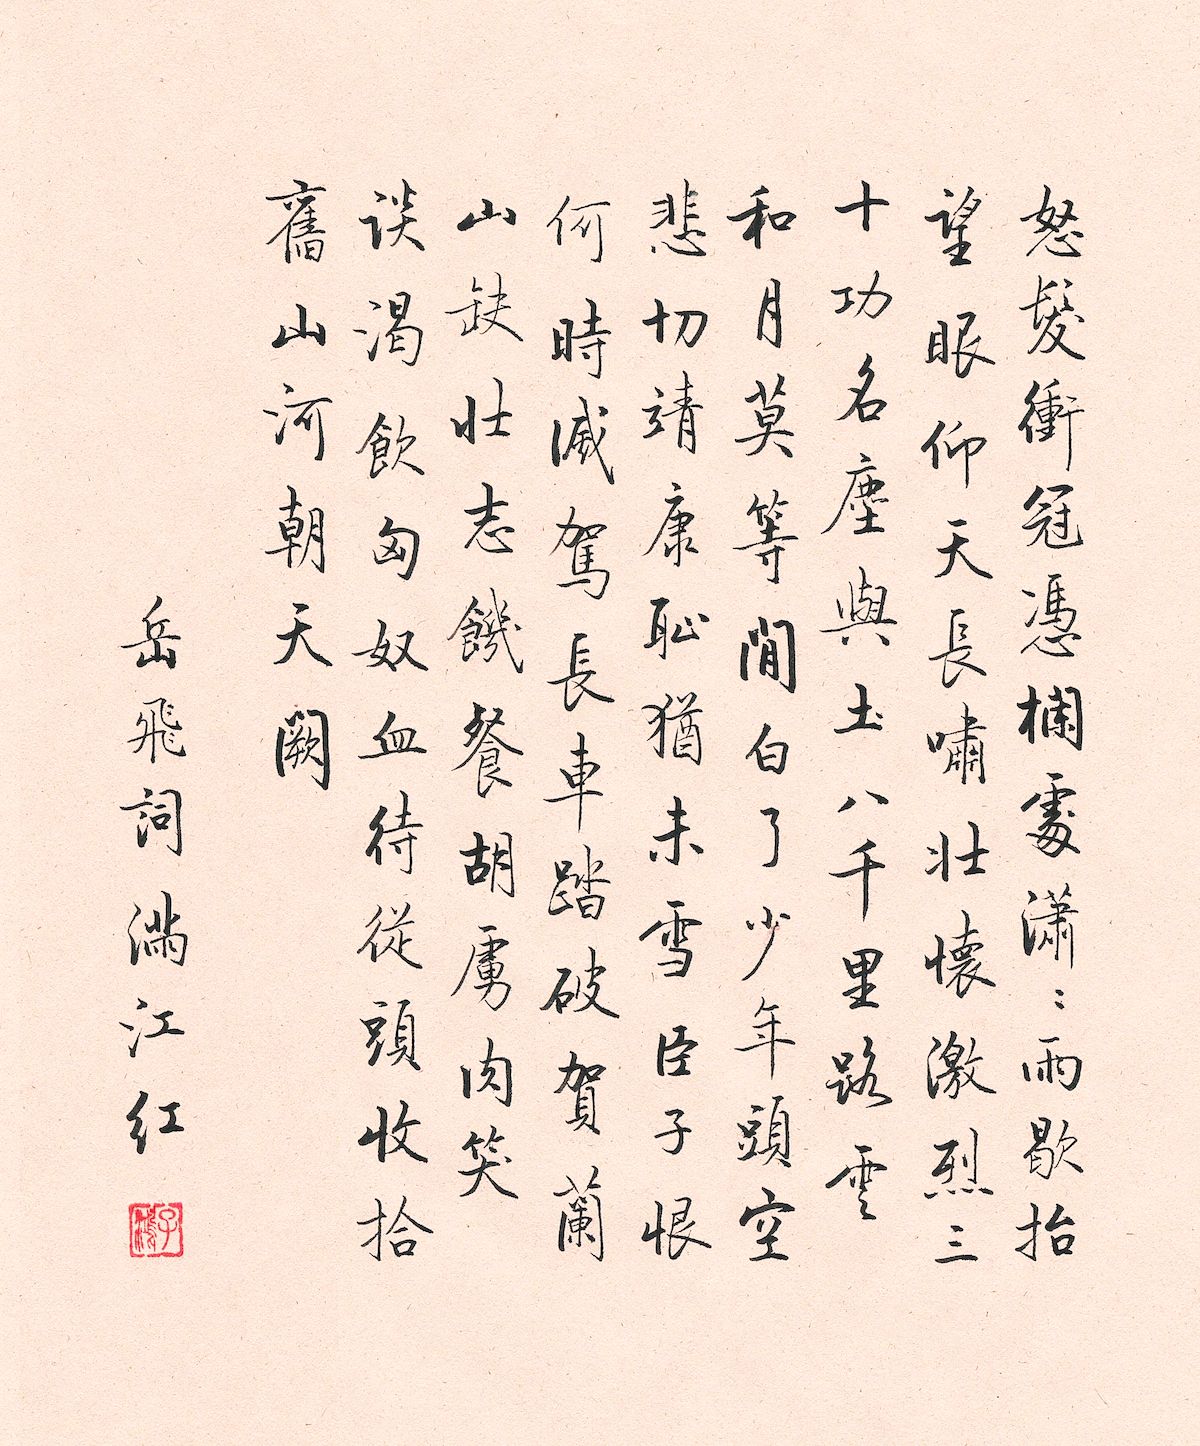 怒髮衝冠憑欄處潇〻雨歇抬
望眼仰天長嘯壯懷激烈三
十功名塵與土八千里路雲
和月莫等閒白了少年頭空
悲切靖康恥猶未雪臣子恨
何時滅駕長車踏破賀蘭
山缺壯志饑餐胡虜肉笑
談渴飲匈奴血待從頭收拾
舊山河朝天闕
岳飛詞滿江红